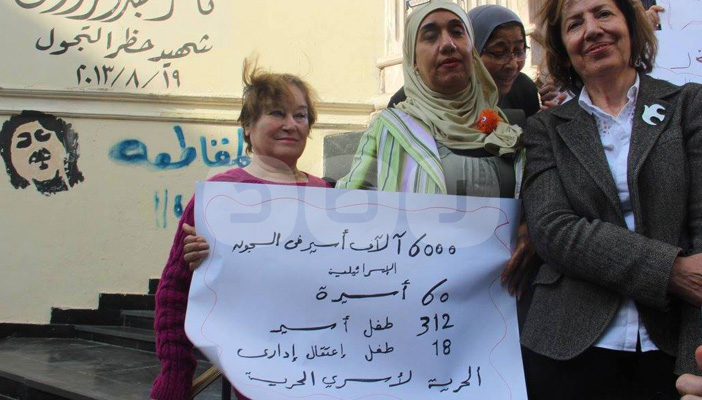 شهيد حظر التجول
٢٠١٣/٨/١٩
المقاطعه
6000 آلاف أسير فى السجون
الإسرائيلية
60 أسيرة
312 طفل أسير
18 طفل إعتقال إدارى
الحرية لأسري الحرية